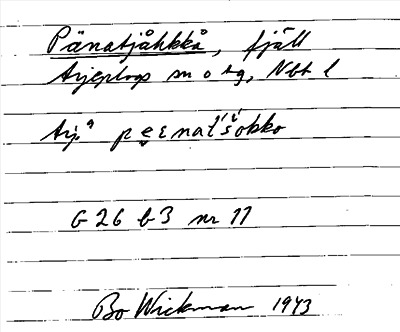 Pänatjåhkkå, fjäll
Arjeplogs sn o tg, Nbt l
Arj. pe̮ɛnat́śokko
G 26 b 3 nr 11
Bo Wickman 1943